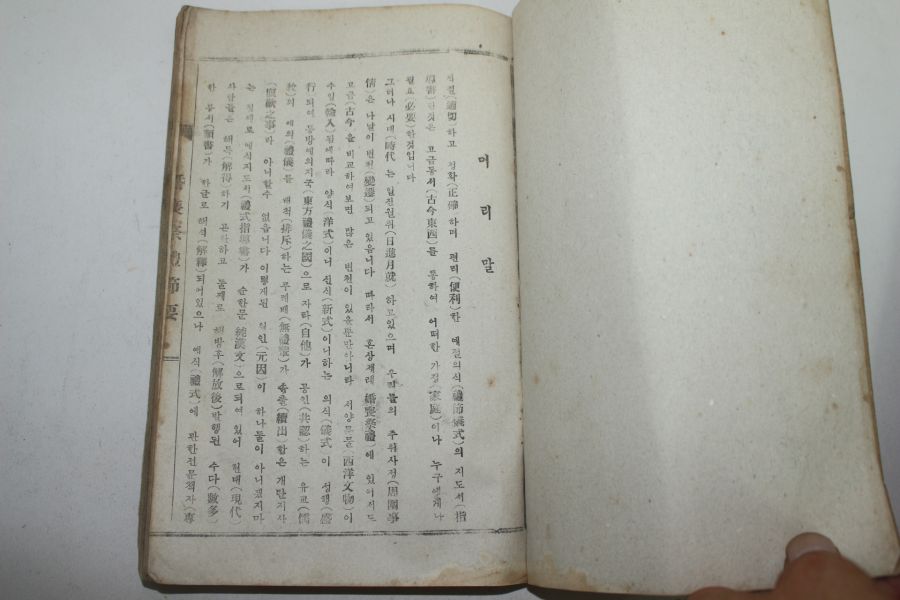 머리말
적절(適切)하고 정확(正確)하며 편리(便利)한 예절의식(禮節儀式)의 지도서(指
導書)란것은 고금동서(古今東西)를 통하여 어떠한 가정(家庭)이나 누구에게나
필요(必要)한것입니다
그러나 시대(時代)는 일진월취(日進月就)하고있으며 우리들의 주위사정(周圍事
情)은 나날이 변천(變遷)되고 있읍니다 따라서 혼상제례(婚喪祭禮)에 있어서도
고금(古今)을 비교하여보면 많은 변천이 있을뿐만아니라 서양문물(西洋文物)이
수입(輸入)됨에따라 양식(洋式)이니 신식(新式)이니하는 의식(儀式)이 성행(盛
行)되여 동방예의지국(東方禮儀之國)으로 자타(自他)가 공인(共認)하는 유교(儒
敎)의 예의(禮儀)를 배척(排斥)하는 무례배(無禮輩)가 속출(續出)함은 개탄지사
(慨歎之事)라 아니할수 없읍니다 이렇게된 원인(元因)이 하나둘이 아니겠지마
는 첫째로 예식지도서(禮式指導書)가 순한문(純漢文)으로되여 있어 현대(現代)
사람들은 해득(解得)하기 곤난하고 둘째로 해방후(解放後)발행된 수다(數多)
한 동서(同書)가 한글로 해석(解釋)되어있으나 예식(禮式)에 관한전문책자(專
喪祭禮節要